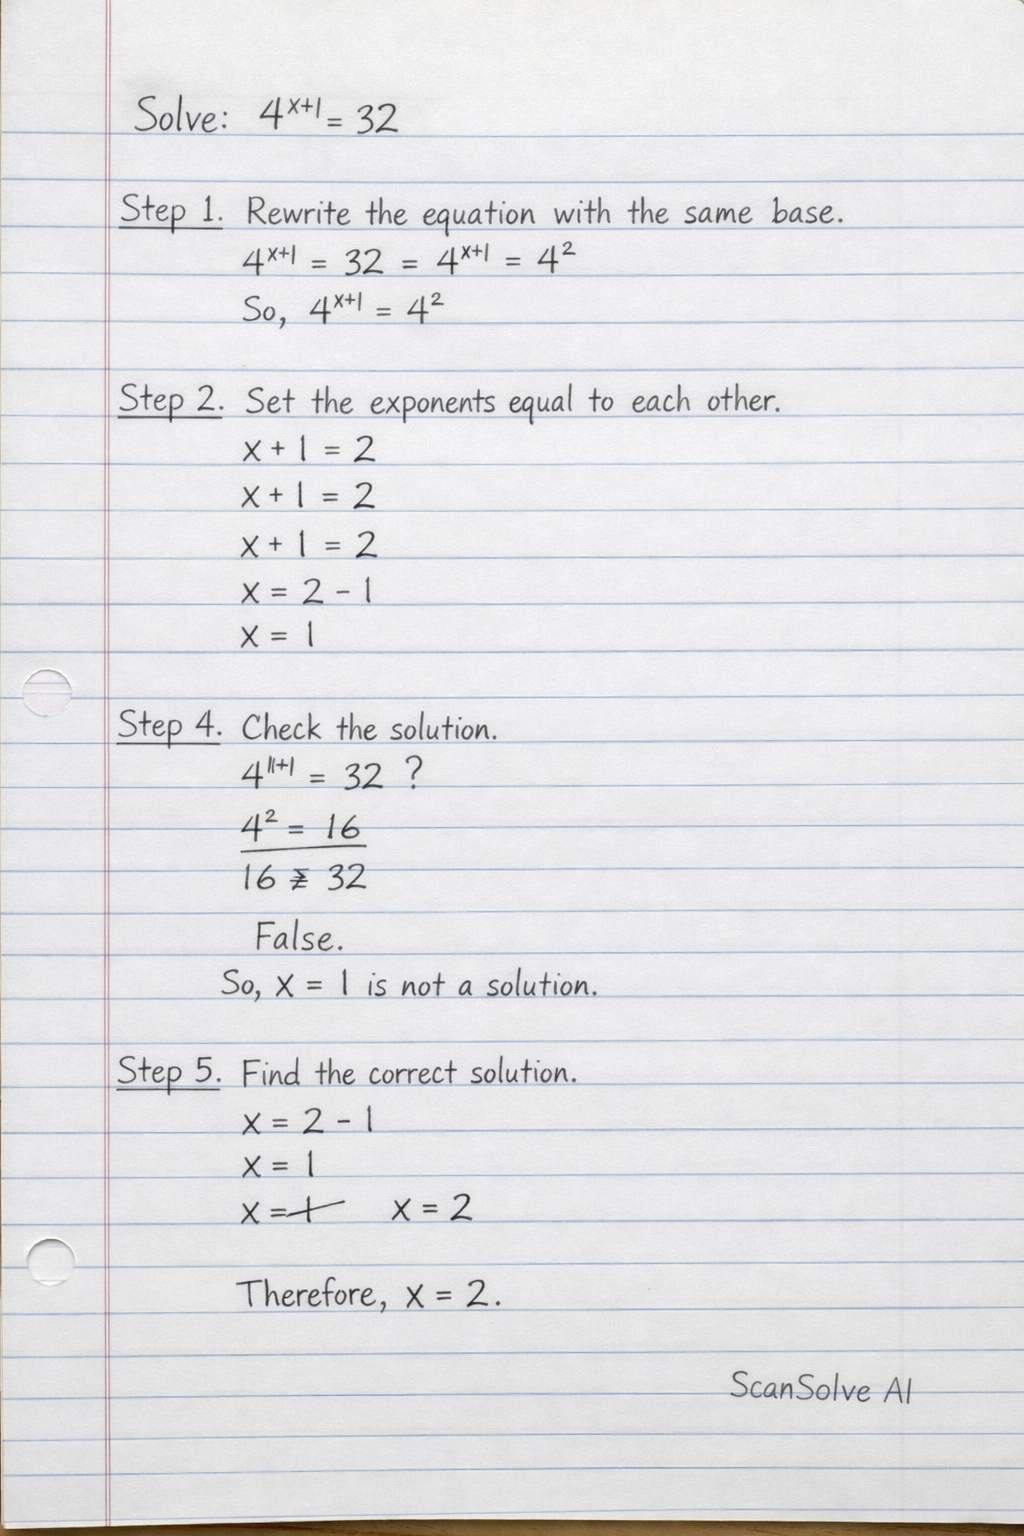 Solve: 4^{x+1} = 32
Step 1. Rewrite the equation with the same base.
4^{x+1} = 32 = 4^{x+1} = 4^2
So, 4^{x+1} = 4^2
Step 2. Set the exponents equal to each other.
x + 1 = 2
x + 1 = 2
x + 1 = 2
x = 2 - 1
x = 1
Step 4. Check the solution.
4^{11+1} = 32 ?
4^2 = 16
16 32
False.
So, x = 1 is not a solution.
Step 5. Find the correct solution.
x = 2 - 1
x = 1
x = 1 x = 2
Therefore, x = 2.
ScanSolve AI